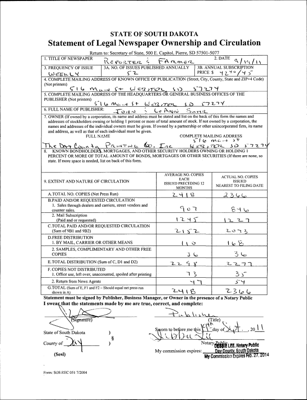 STATE OF SOUTH DAKOTA
Statement of Legal Newspaper Ownership and Circulation
Return to: Secretary of State, 500 E. Capitol, Pierre, SD 57501-5077
1. TITLE OF NEWSPAPER Reporter & Farmer 2. DATE 9/19/11
3. FREQUENCY OF ISSUE Weekly
3A. NO. OF ISSUES PUBLISHED ANNUALLY 52
3B. ANNUAL SUBSCRIPTION PRICE $
4. COMPLETE MAILING ADDRESS OF KNOWN OFFICE OF PUBLICATION (Street, City, County, State and ZIP+4 Code) (Not printers)
516 Main St Webster SD 57274
5. COMPLETE MAILING ADDRESS OF THE HEADQUARTERS OR GENERAL BUSINESS OFFICES OF THE
PUBLISHER (Not printer)
516 Main St Webster SD 57274
6. FULL NAME OF PUBLISHER:
7. OWNER (If owned by a corporation, its name and address must be stated and list on the back of this form the names and
addresses of stockholders owning or holding 1 percent or more of total amount of stock. If not owned by a corporation, the
names and addresses of the individual owners must be given. If owned by a partnership or other unincorporated firm, its name
and address, as well as that of each individual must be given.
FULL NAME COMPLETE MAILING ADDRESS
516 Main St
Webster SD 57274
8. KNOWN BONDHOLDERS, MORTGAGEES, AND OTHER SECURITY HOLDERS OWNING OR HOLDING 1
PERCENT OR MORE OF TOTAL AMOUNT OF BONDS, MORTGAGES OR OTHER SECURITIES (If there are none, so
state. If more space is needed, list on back of this form.
9. EXTENT AND NATURE OF CIRCULATION
AVERAGE NO. COPIES EACH ISSUE DURING PRECEDING 12 MONTHS
ACTUAL NO. COPIES ISSUED NEAREST TO FILING DATE
A. TOTAL NO. COPIES (Net Press Run) 2418 2366
B. PAID AND/OR REQUESTED CIRCULATION
1. Sales through dealers and carriers, street vendors and
counter sales. 907 846
2. Mail Subscription
(Paid and or requested) 1245 1227
C. TOTAL PAID AND/OR REQUESTED CIRCULATION
(Sum of 9B1 and 9B2) 2152 2073
D. FREE DISTRIBUTION
1. BY MAIL, CARRIER OR OTHER MEANS 110 168
2. SAMPLES, COMPLIMENTARY AND OTHER FREE
COPIES 36 36
E. TOTAL DISTRIBUTION (Sum of C, D1 and D2) 2298 2277
F. COPIES NOT DISTRIBUTED
1. Office use, left over, unaccounted, spoiled after printing 73 35
2. Return from News Agents 47 54
G. TOTAL (Sum of E, F1 and F2 - Should equal net press run
shown in A) 2418 2366
Statement must be signed by Publisher, Business Manager, or Owner in the presence of a Notary Public
I swear that the statements made by me are true, correct, and complete:
Publisher
(Signature) (Title)
State of South Dakota
Sworn to before me this day of Sept 2011
County of Day
Notary Public
DEBBIE LEE, Notary Public
Day County, South Dakota
My Commission Expires Feb. 27, 2014
(Seal) My commission expires: